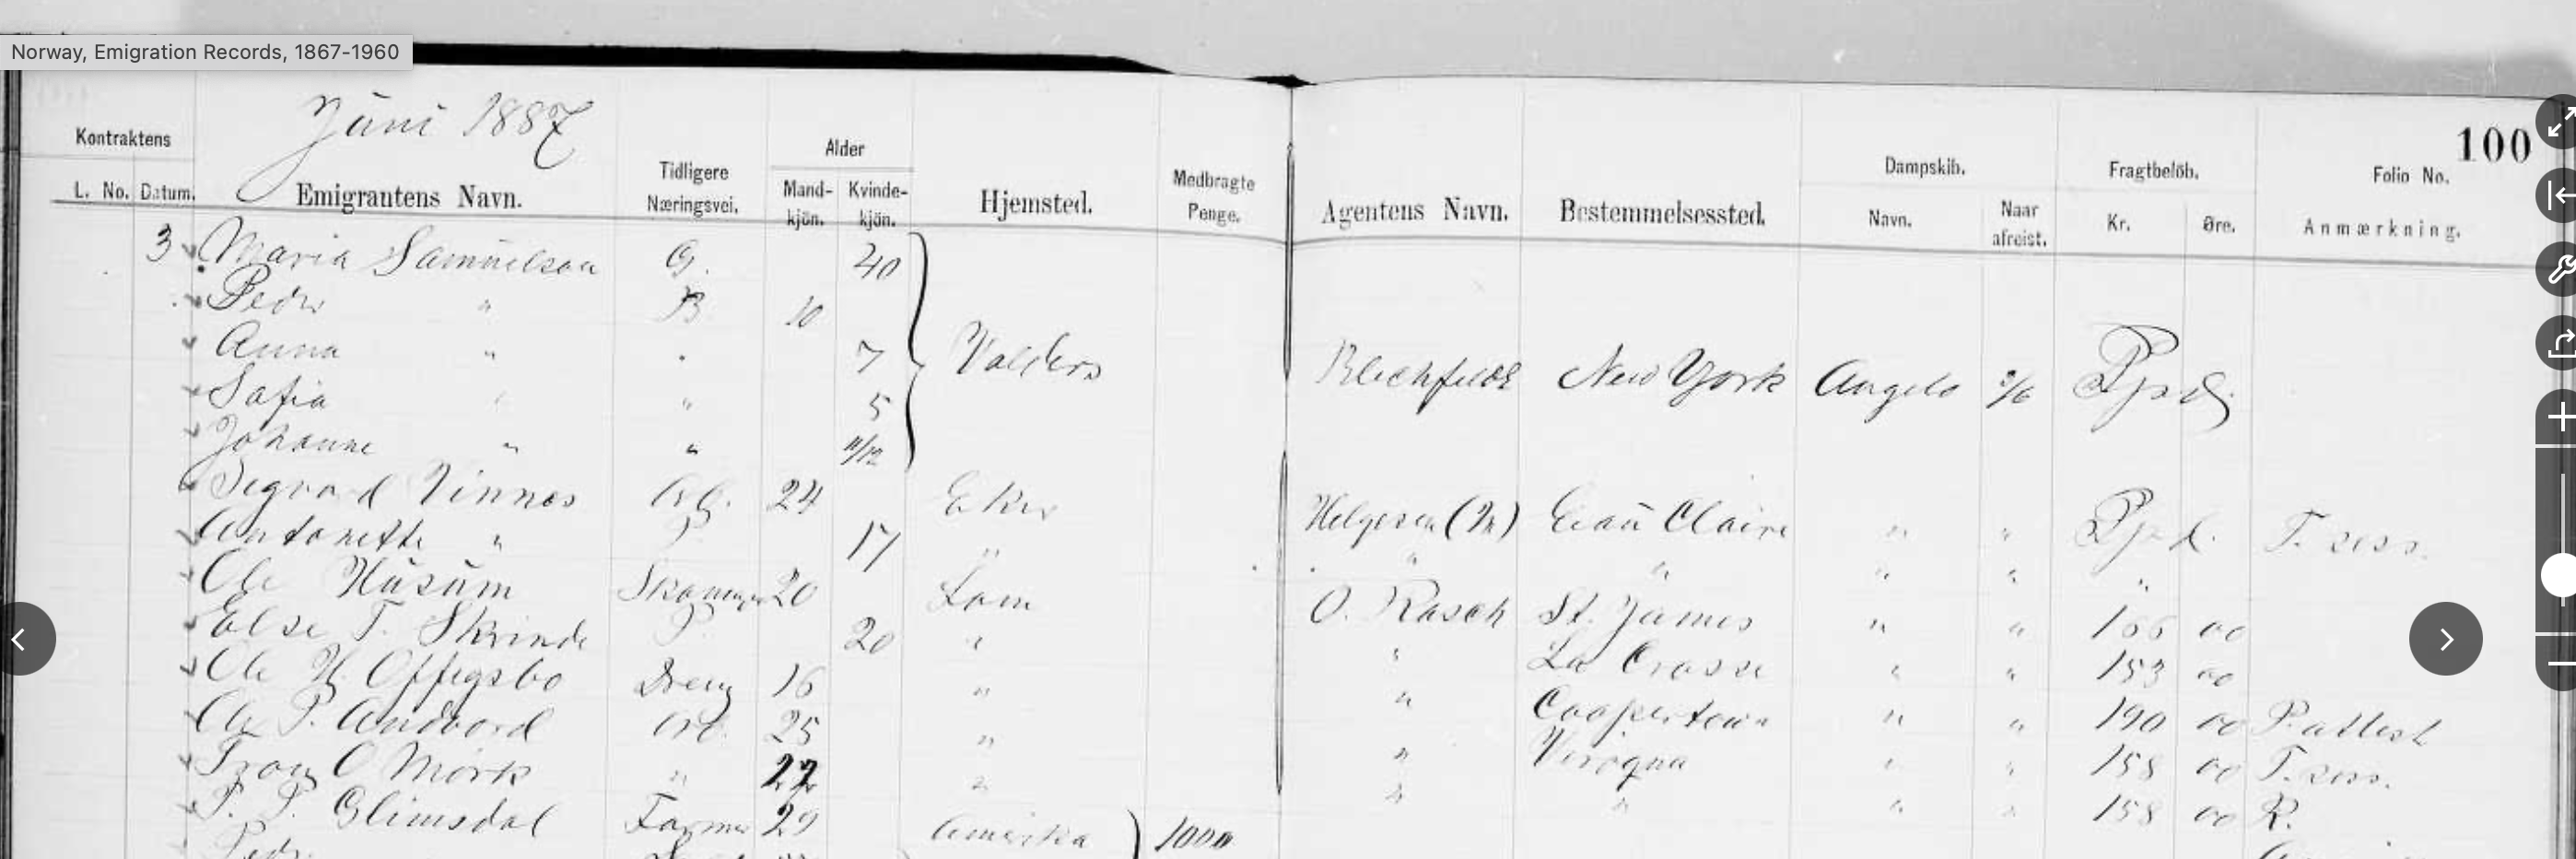 Norway, Emigration Records, 1867-1960
Juni 1887
100
Kontraktens
L. No. Datum.
Emigrantens Navn.
Tidligere Næringsvei.
Alder
Mand-kjön. Kvinde-kjön.
Hjemsted.
Medbragte Penge.
Agentens Navn.
Bestemmelsessted.
Dampskib.
Navn. Naar afreist.
Fragtbelöb.
Kr. Øre.
Folio No.
Anmærkning.
3 Maria Samuelson G. 40
Peder " B 10
Anna " " 7 Valders Blichfeldt New York Angelo 3/6 Ppd
Sofia " " 5
Johanne " " 11/12
Segvard Vinnes Arb. 24 Eker Helgesen (Th) Eau Claire " " Ppd. T. sess.
Antonette " P. 17 " " " " " "
Ole Husum 20 Lom O. Rasch St. James " " 166 00
Else T. Skrinde P. 20 " " La Crosse " " 153 00
Ole H. Offigsbo Dreng 16 " " Coopertown " " 190 00 P. attest
Ole P. Andvord Arb. 25 " " Viroqua " " 158 00 T. sess.
Tron O Mörk " 22 " " " " " 158 00 R.
T. P. Glimsdal Farmer 29 Amerika 1000
Peder